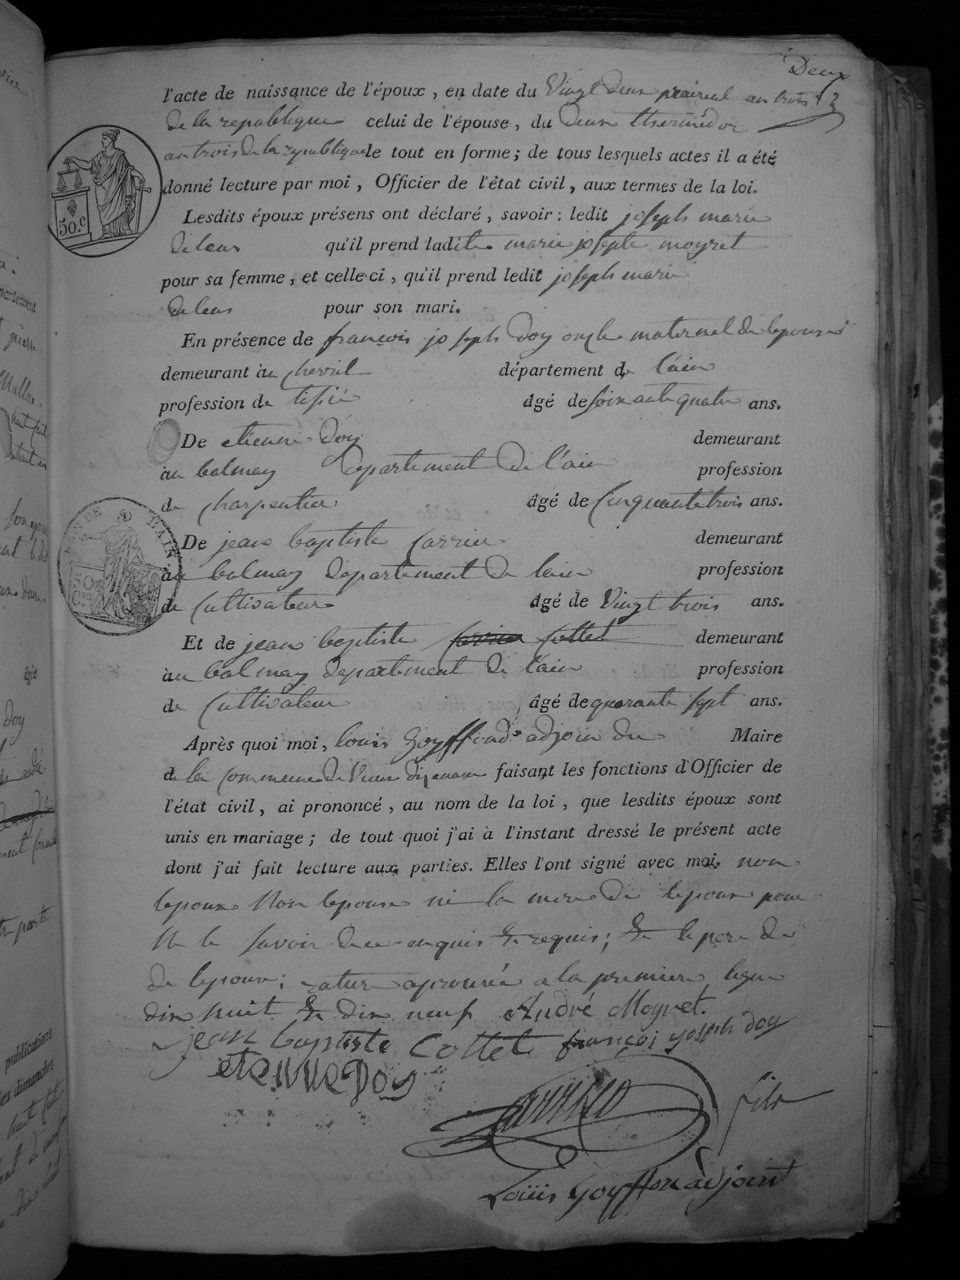 Deux
l'acte de naissance de l'époux, en date du Vingt deux prairial an trois
de la republique celui de l'épouse, du deux thermidor
an trois de la republique le tout en forme; de tous lesquels actes il a été
donné lecture par moi, Officier de l'état civil, aux termes de la loi.
Lesdits époux présens ont déclaré, savoir: ledit joseph marie
qu'il prend ladite marie josephe moyret
pour sa femme, et celle-ci, qu'il prend ledit joseph marie
pour son mari.
En présence de françois joseph Doy oncle maternel de lepouse
demeurant à département de l'ain
profession de âgé de soixante quatre ans.
De etienne Doy demeurant
à balmay département de l'ain profession
de charpentier âgé de Cinquante trois ans.
De jean baptiste carrier demeurant
à balmay département de lain profession
de Cultivateur âgé de Vingt trois ans.
Et de jean baptiste cottet demeurant
à balmay département de l'ain profession
de Cultivateur âgé de quarante sept ans.
Après quoi moi, louis goyffond adjoin du Maire
de la commune de Vieux faisant les fonctions d'Officier de
l'état civil, ai prononcé, au nom de la loi, que lesdits époux sont
unis en mariage; de tout quoi j'ai à l'instant dressé le présent acte
dont j'ai fait lecture aux parties. Elles l'ont signé avec moi, non
lepoux Non lepouse ni la mere de lepoux pour
Ne le savoir de ce enquis & requis; le pere de
de lepoux; rature aprouvée a la premiere ligne
dix huit & dix neuf André Moyret.
jean baptiste Cottet françoi joseph doy
eteNNe Doy
fils
Louis Goyffon adjoint
50.c